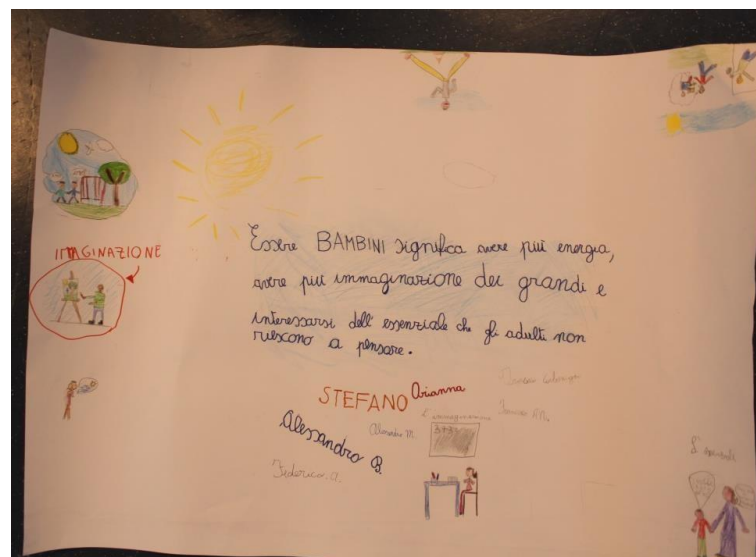 IMMAGINAZIONE
Essere BAMBINI significa avere più energia,
avere più immaginazione dei grandi e
interessarsi dell'essenziale che gli adulti non
riescono a pensare.
STEFANO Arianna
Alessandro B.
Alessandro M.
Federico. A.